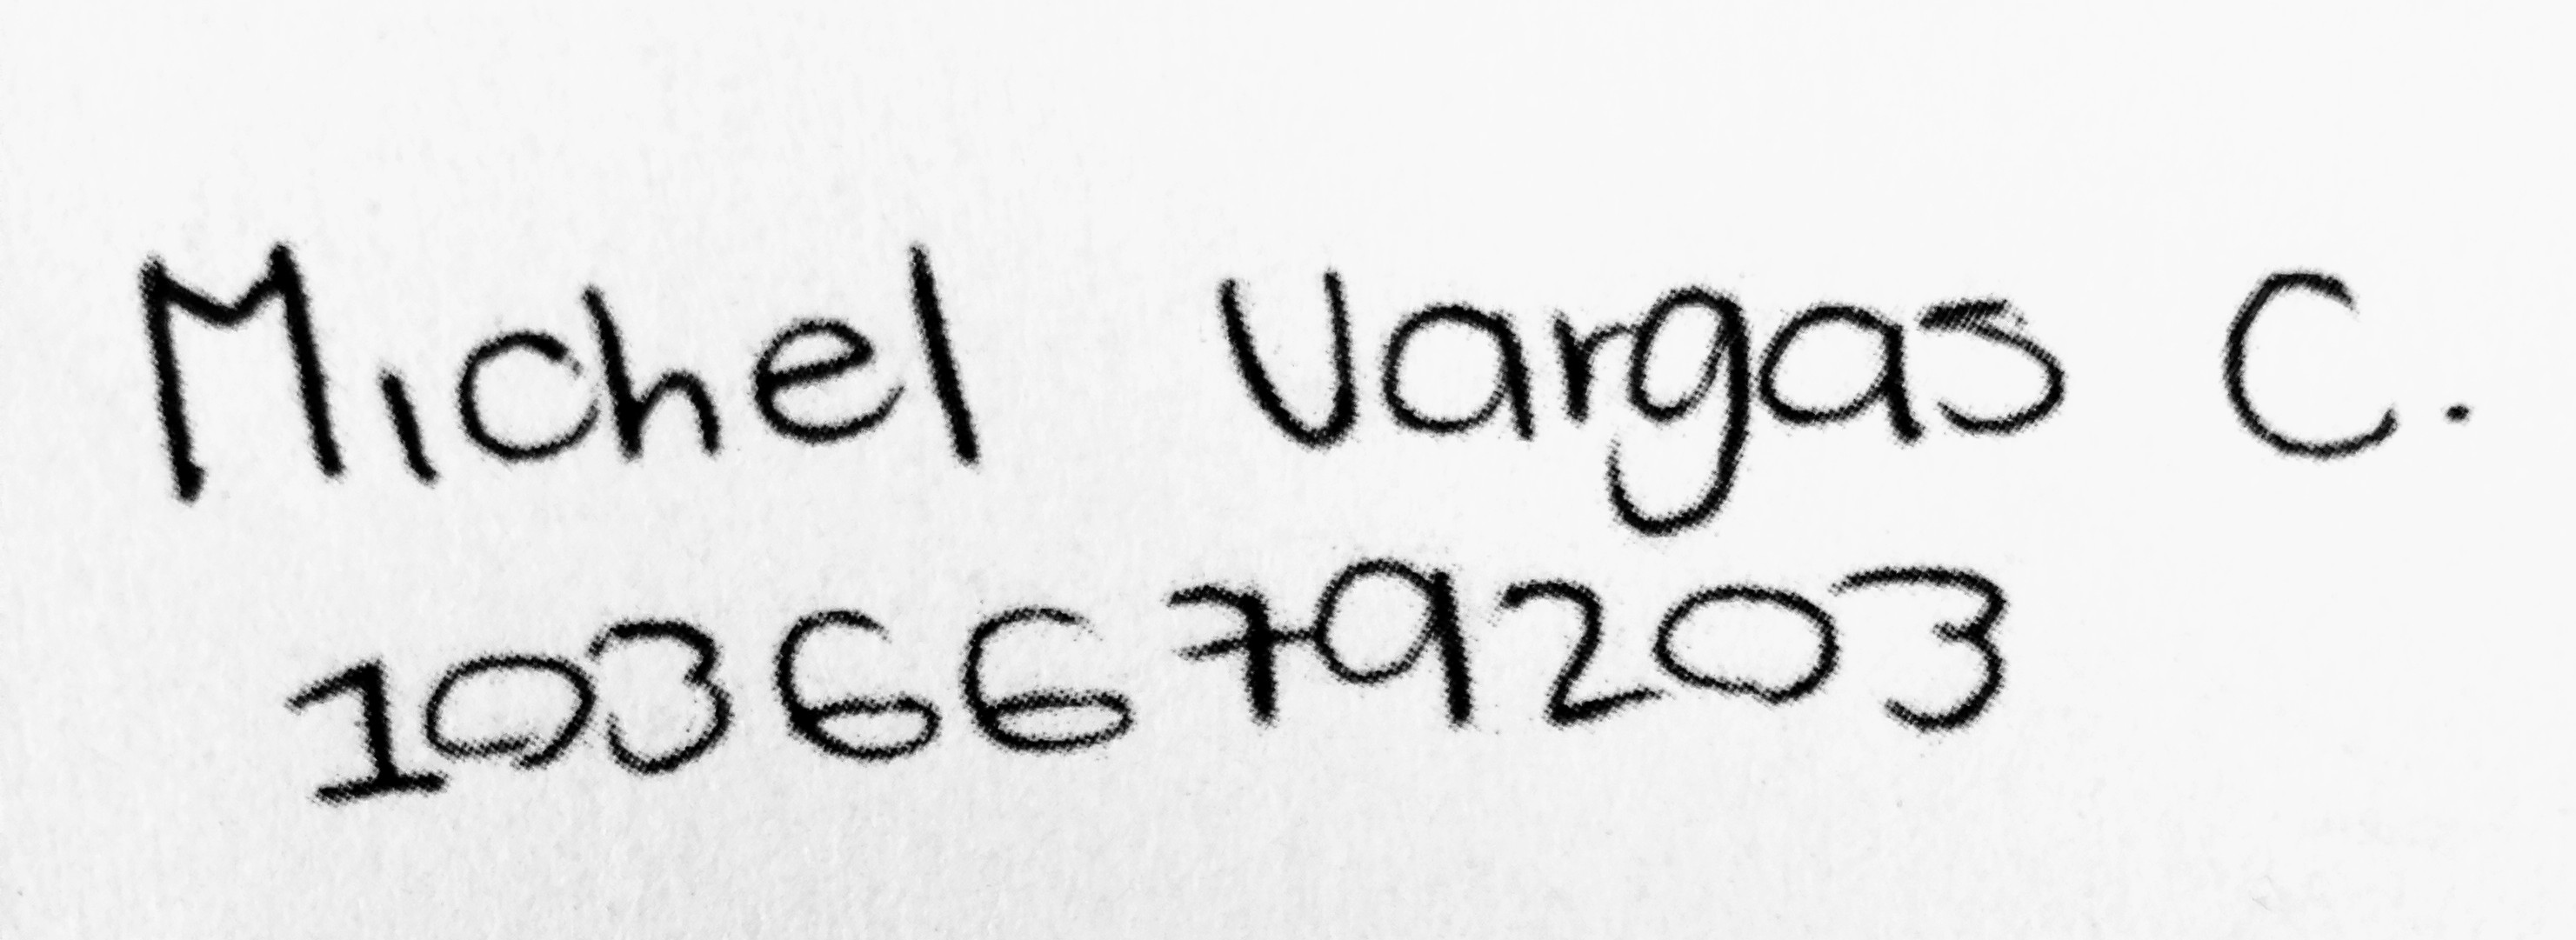 Michel Vargas C.
1036679203